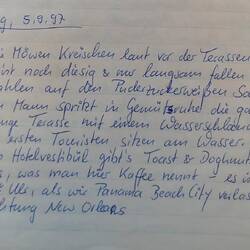 g, 5.9.97
Möwen Kreischen laut vor der Terassen
noch diesig & nur langsam fallen
ahlen auf den Puderzuckerweißen Sa
Mann spritzt in Gemütsruhe die ga
nge Terasse mit einem Wasserschlau
ersten Touristen sitzen am Wasser.
Hotelvestibül gibt's Toast & Doghnuts
, was man hier Kaffee nennt - es i
Uhr, als wir Panama Beach City verlas
htung New Orleans